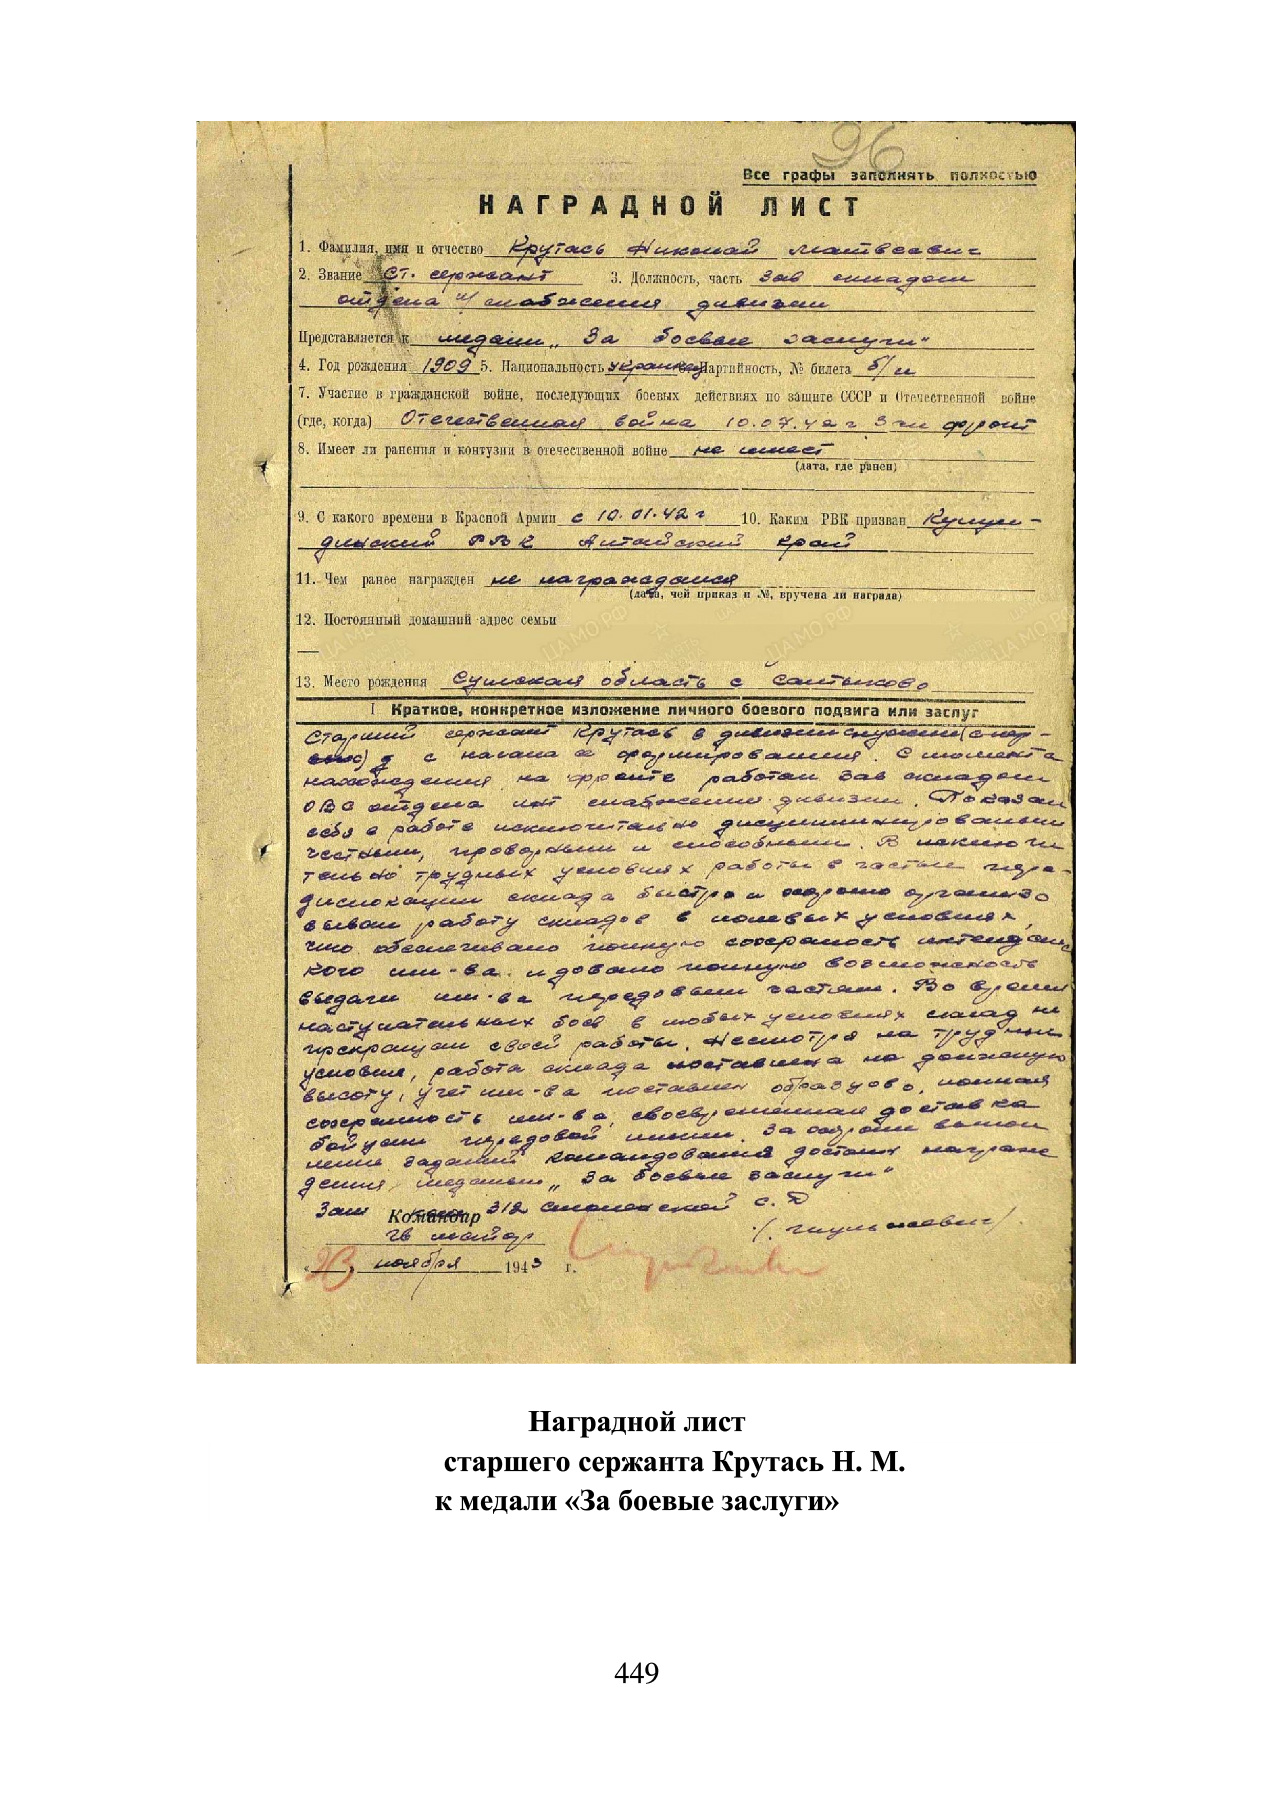 96
Все графы заполнять полностью
НАГРАДНОЙ ЛИСТ
1. Фамилия, имя и отчество Крутась Николай Матвеевич
2. Звание Ст. сержант 3. Должность, часть Зав складом
отдела и/снабжения дивизии
Представляется к медали „За боевые заслуги"
4. Год рождения 1909 5. Национальность украинец Партийность, № билета б/п
7. Участие в гражданской войне, последующих боевых действиях по защите СССР и Отечественной войне
(где, когда) Отечественная война 10.07.42 г Зап фронт
8. Имеет ли ранения и контузии в отечественной войне не имеет
(дата, где ранен)
9. С какого времени в Красной Армии с 10.01.42 г 10. Каким РВК призван Кулун-
динский РВК Алтайский край
11. Чем ранее награжден не награждался
(дата, чей приказ и №, вручена ли награда)
12. Постоянный домашний адрес семьи
13. Место рождения Сумская область с Салтыково
I Краткое, конкретное изложение личного боевого подвига или заслуг
Старший сержант Крутась в дивизии
с начала ее формирования. С момента
нахождения на фронте работал зав складом
ОВС отдела инт снабжения дивизии. Показал
себя в работе исключительно дисциплинированым
честным, проворным и способным. В исключи
тельно трудных условиях работы в частых пере-
дислокации склада быстро и хорошо организо
вывал работу складов в полевых условиях,
что обеспечивало полную сохраность интендантс
кого им-ва и довало полную возможность
выдачи им-ва передовым частям. Во время
наступательных боев в любых условиях склад не
прекращал своей работы. Несмотря на трудные
условия, работа склада поставлена на должную
высоту, учет им-ва поставлен образцово, полная
сохранность им-ва, своевременная доставка
бойцам передовой линии. За хорошее выпол
нение заданий командования достоин награж
дения медалью „За боевые заслуги"
Зам Командир 312 смоленской с. Д
гв майор /Шулькевич/
„23" ноября 1943 г.
ЦАМО РФ
Наградной лист
старшего сержанта Крутась Н. М.
к медали «За боевые заслуги»
449